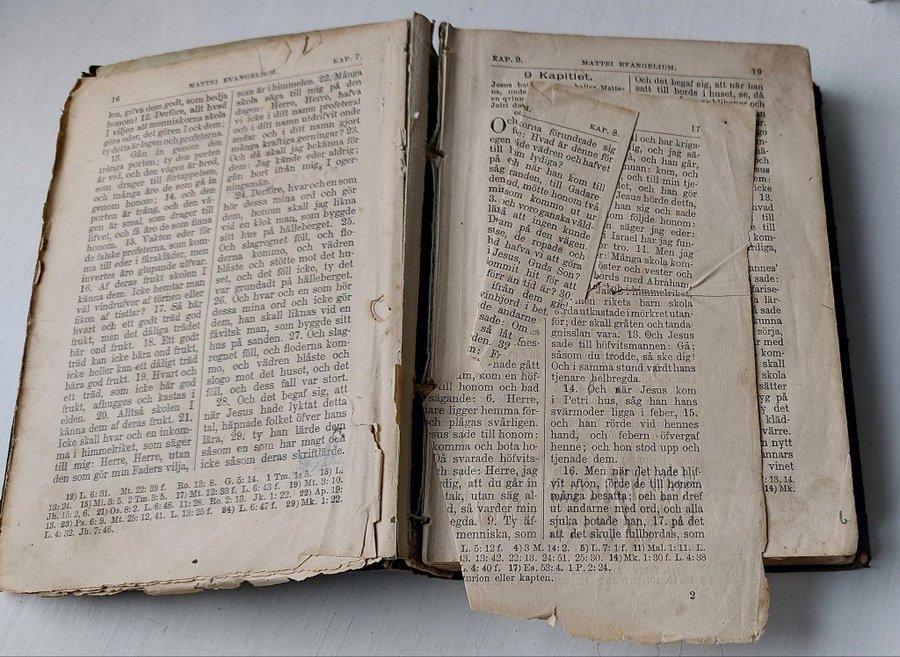 16 MATTEI EVANGELIUM. KAP. 7.
len, gifva dem godt, som bedja
honom! 12. Derföre, allt hvad
I viljen att menniskorna skola
göra eder, det gören I ock dem;
ty detta är lagen och profeterna.
13. Gån in genom den
trånga porten; ty den porten
är vid, och den vägen är bred,
som drager till förtappelsen,
och många äro de som gå in
genom honom; 14. och den
porten är trång, och den vä-
gen är smal, som drager till
lifvet, och få äro de som finna
honom. 15. Vakten eder för
de falske profeterna, som kom-
ma till eder i fårakläder, men
invertes äro glupande ulfvar.
16. Af deras frukt skolen I
känna dem. Icke hemtar man
väl vindrufvor af törnen eller
fikon af tistlar? 17. Så bär
hvart och ett godt träd god
frukt, men det dåliga trädet
bär ond frukt. 18. Ett godt
träd kan icke bära ond frukt,
icke heller kan ett dåligt träd
bära god frukt. 19. Hvart och
ett träd, som icke bär god
frukt, afhugges och kastas i
elden. 20. Alltså skolen I
känna dem af deras frukt. 21.
Icke skall hvar och en inkom-
ma i himmelriket, som säger
till mig: Herre, Herre, utan
den som gör min Faders vilja,
som är i himmelen. 22. Många
skola säga till mig på den
dagen: Herre, Herre, hafva
vi icke i ditt namn profeterat
och i ditt namn utdrifvit onde
andar och i ditt namn gjort
många kraftiga gerningar? 23.
Och då skall jag bekänna för
dem: Jag kände eder aldrig;
gån bort ifrån mig, I oger-
ningsmän.
24. Derföre, hvar och en som
hör dessa mina ord och gör
dem, honom skall jag likna
vid en klok man, som byggde
sitt hus på hälleberget. 25.
Och slagregnet föll, och flo-
derna kommo, och vädren
blåste och stötte mot det hu-
set, och det föll icke, ty det
var grundadt på hälleberget.
26. Och hvar och en som hör
dessa mina ord och icke gör
dem, han skall liknas vid en
fåvitsk man, som byggde sitt
hus på sanden. 27. Och slag-
regnet föll, och floderna kom-
mo, och vädren blåste och
slogo mot det huset, och det
föll, och dess fall var stort.
28. Och det begaf sig, att
när Jesus hade lyktat detta
tal, häpnade folket öfver hans
lära, 29. ty han lärde dem
såsom en som har magt och
icke såsom deras skriftlärde.
12) L. 6: 31. Mt. 22: 39 f. Ro. 13: 8. G. 5: 14. 1 Tm. 1: 5. 13) L.
13: 24. 15) Mi. 3: 5. 2 Tm. 3: 5. 17) Mt. 12: 33 f. L. 6: 43 f. 19) Mt. 3: 10.
Jh. 15: 2, 6. 21) Os. 8: 2. L. 6: 46. 11: 28. Ro. 2: 13. Jk. 1: 22. 22) Ap. 19:
13. 23) Ps. 6: 9. Mt. 25: 12, 41. L. 13: 25 f. 24) L. 6: 47 f. 29) Mk. 1: 22.
L. 4: 32. Jh. 7: 46.
KAP. 9. MATTEI EVANGELIUM. 19
9 Kapitlet.
Och det begaf sig, att när han
satt till bords i huset, se, då
KAP. 8.
orna förundrade sig
Hvad är denne för
vädren och hafvet
lydiga?
när han kom till
randen, till Gadare
mötte honom två
som kommo ut ur
voro ganska våld-
att ingen kunde
fram på den vägen.
se, de ropade och
hafva vi att göra
Jesus, Guds Son?
kommit hit för att
förr än tid är? 30.
ifrån dem gick
svinhjord i bet.
andarne
sade: Om
så låt
17
och har krigs-
och jag sä-
och han går,
kom, och
till min tje-
och han gör
Jesus hörde detta,
han sig och sade
som följde honom:
säger jag eder:
Israel har jag fun-
tro. 11. Men jag
Många skola kom-
öster och vester och
bords med Abraham,
Jakob i himmelriket,
men rikets barn skola
utkastade i mörkret utan-
för; der skall gråten och tanda-
gnisslan vara. 13. Och Jesus
sade till höfvitsmannen: Gå;
såsom du trodde, så ske dig!
Och i samma stund vardt hans
tjenare helbregda.
14. Och när Jesus kom
i Petri hus, såg han hans
svärmoder ligga i feber, 15.
och han rörde vid hennes
hand, och febern öfvergaf
henne; och hon stod upp och
tjenade dem.
16. Men när det hade blif-
vit afton, förde de till honom
många besatta; och han dref
ut andarne med ord, och alla
sjuka botade han, 17. på det
att det skulle fullbordas, som
nade gått
um, som en höf-
till honom och bad
sägande: 6. Herre,
nare ligger hemma för-
och plågas svårligen.
Jesus sade till honom:
komma och bota ho-
Då svarade höfvits-
och sade: Herre, jag
värdig, att du går in
tak, utan säg al-
så varder min
egda. 9. Ty äf-
menniska, som
L. 5: 12 f. 4) 3 M. 14: 2. 5) L. 7: 1 f. 11) Mal. 1: 11. L.
13. 13: 42. 22: 13. 24: 51. 25: 30. 14) Mk. 1: 30 f. L. 4: 38
L. 4: 40 f. 17) Es. 53: 4. 1 P. 2: 24.
turion eller kapten.
2